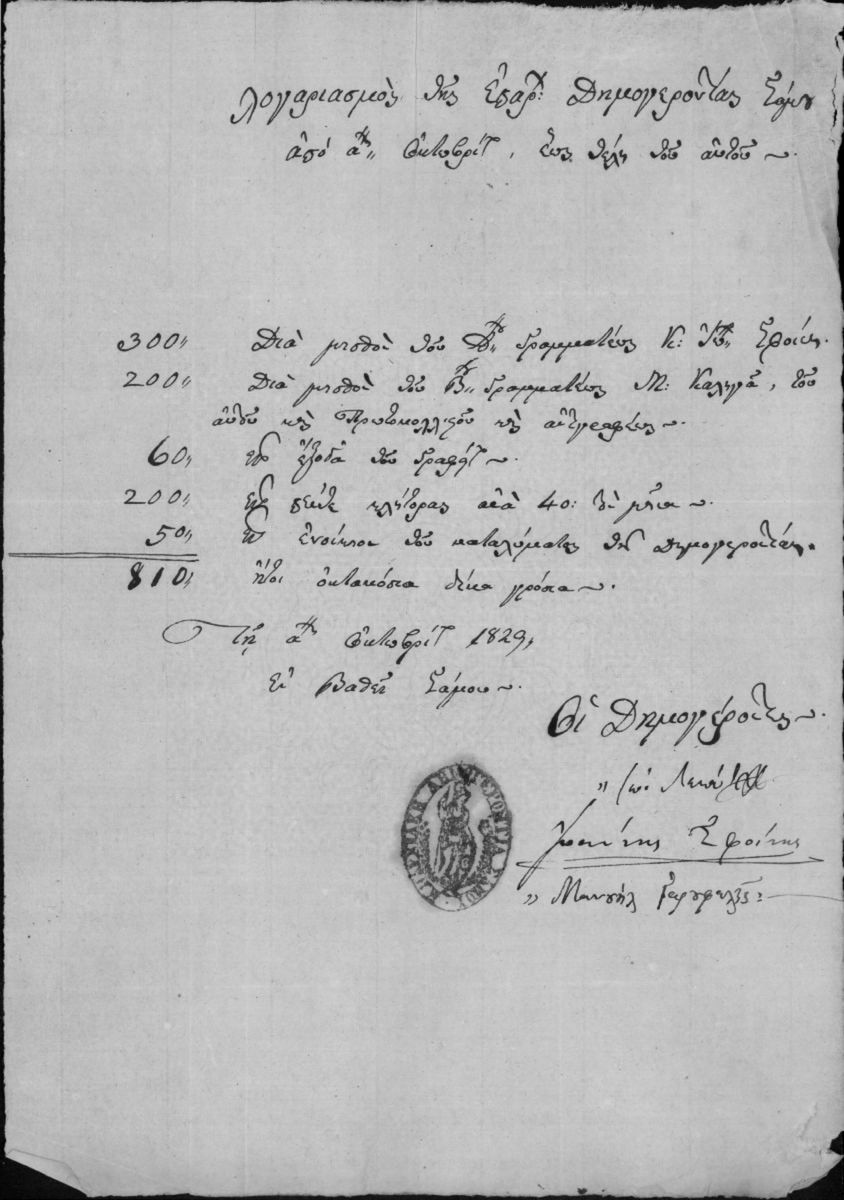 Λογαριασμὸς τῆς Ἐπαρχ: Δημογεροντίας Σάμου
ἀπό α^{ης} Ὀκτωβρίου, ἕως τέλη τοῦ αὐτοῦ
300,, Διὰ μισθὸν τοῦ Α^{ου} Γραμματέως Κ: Ἰω,, Σφοίνη.
200,, Διὰ μισθὸν τοῦ Β^{ου} Γραμματέως Μ: Καλυμᾶ, τοῦ
αὐτοῦ καὶ Πρωτοκολλιστοῦ καὶ ἀντιγραφέως
60,, διὰ ἔξοδα τοῦ Γραφείου
200,, διὰ πέντε κλητόρας ἀνὰ 40: τὸν μῆνα
50,, διὰ ἐνοίκιον τοῦ καταλύματος τῆς Δημογεροντίας.
810,, ἤτοι ὀκτακόσια δέκα γρόσια
Τῇ α^{ῃ} Ὀκτωβρίου 1829,
Ἐν Βαθεῖ Σάμου
Οἱ Δημογέροντες
Ἰωάννης Σφοίνης
,, Μανουὴλ
ΔΗΜΟΓΕΡΟΝΤΙΑ ΣΑΜΟΥ